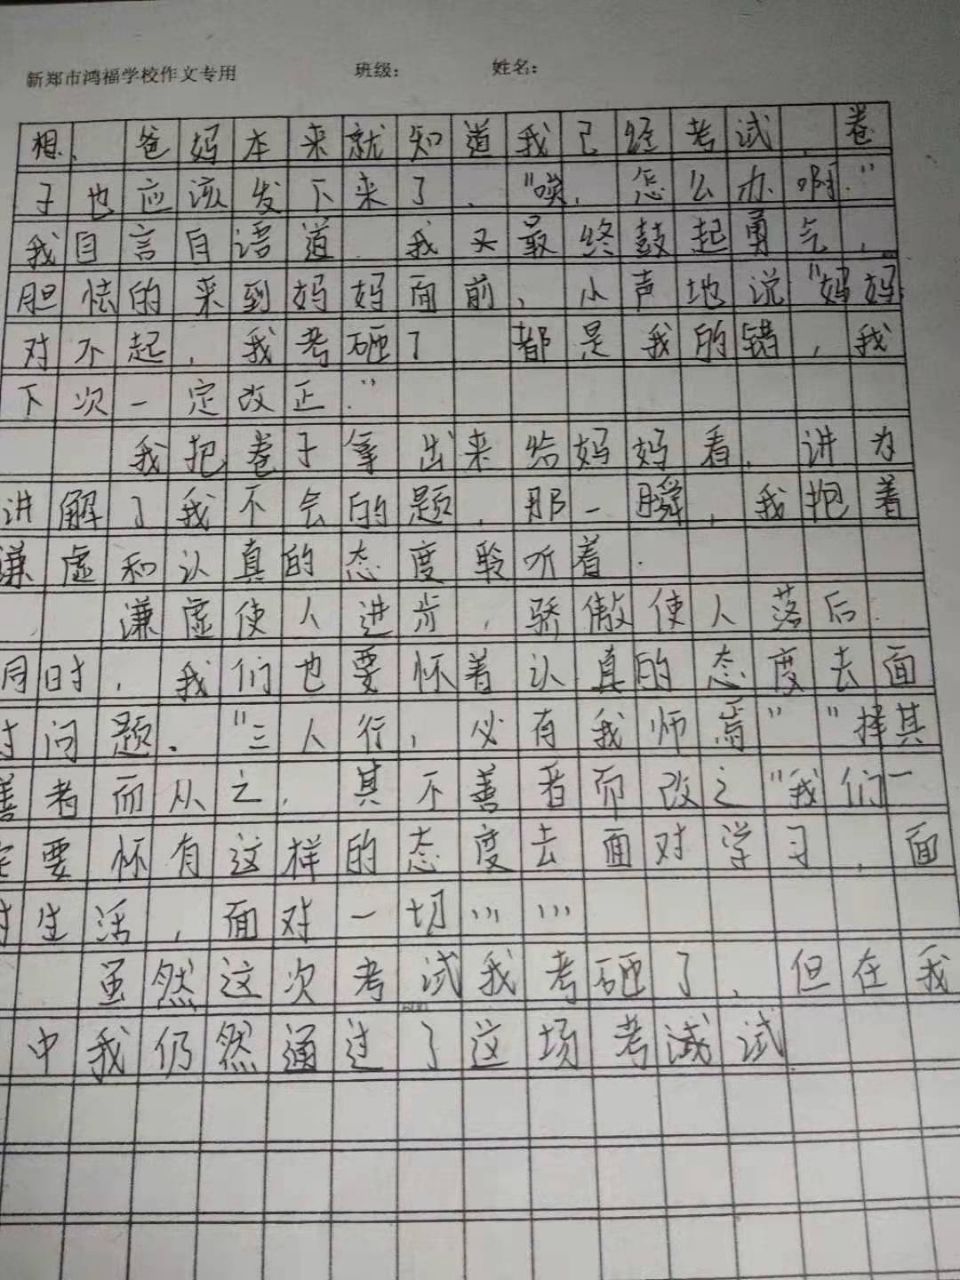 新郑市鸿福学校作文专用 班级: 姓名:
想、爸妈本来就知道我已经考试,卷
子也应该发下来了、"唉,怎么办啊."
我自言自语道.我又最终鼓起勇气,
胆怯的来到妈妈面前,小声地说"妈妈
对不起,我考砸了 都是我的错,我
下次一定改正."
我把卷子拿出来给妈妈看、讲为
讲解了我不会的题,那一瞬,我抱着
谦虚和认真的态度聆听着.
谦虚使人进步,骄傲使人落后.
同时,我们也要怀着认真的态度去面
对问题."三人行,必有我师焉""择其
善者而从之,其不善者而改之"我们一
定要怀有这样的态度去面对学习,面
对生活,面对一切……
虽然这次考试我考砸了,但在我
中我仍然通过了这场考试